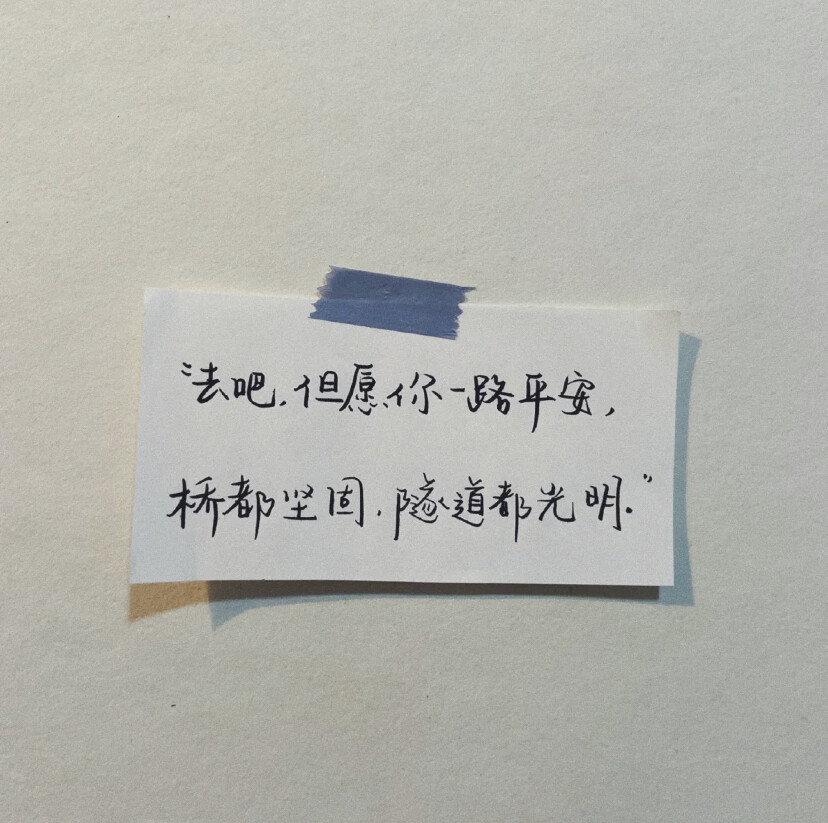 “去吧，但愿你一路平安，
桥都坚固，隧道都光明.”